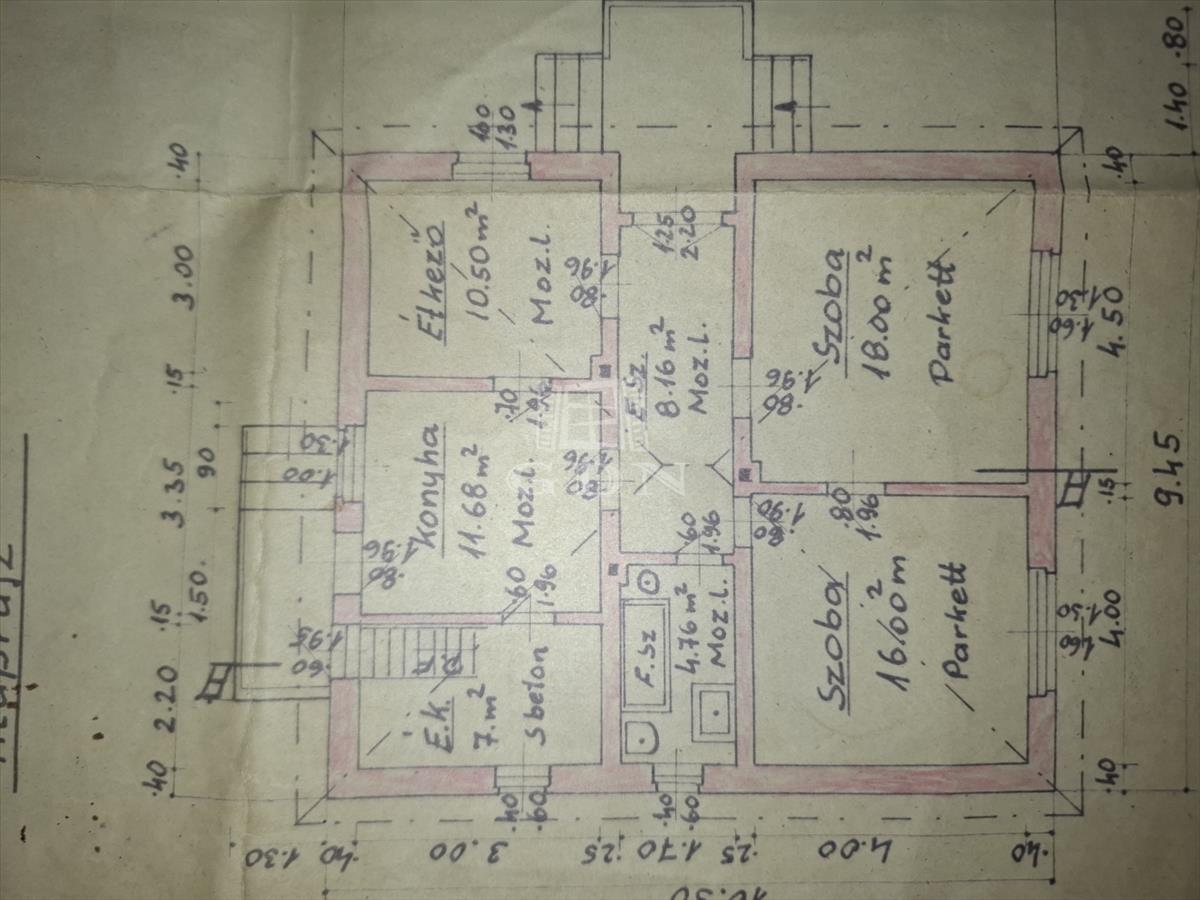 Étkező
10.50 m²
Moz.l.
Konyha
11.68 m²
Moz.l.
É.K.
7. m²
S beton
E.Sz
8.16 m²
Moz.l.
F.Sz
4.76 m²
Moz.l.
Szoba
18.00 m²
Parkett
Szoba
16.00 m²
Parkett
.40
3.00
.15
3.35
.15
2.20
.40
90
1.50.
1.30
1.00
.80
1.96
.60
1.30
1.25
2.20
.80
1.96
.70
.60
1.96
.60
1.96
.80
1.96
.80
1.96
.40
.60
.40
.60
1.40
.80
.40
4.50
.15
4.00
.40
9.45
1.60
1.30
.40
3.00
.25
1.70
.25
4.00
.40
GDN